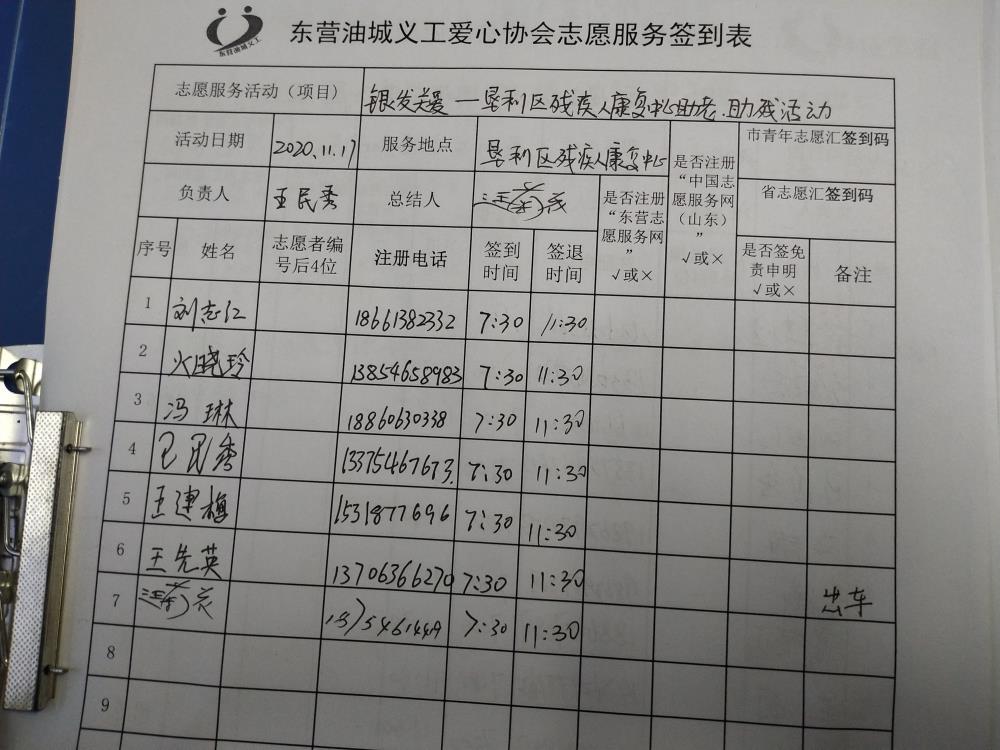 东营油城义工
东营油城义工爱心协会志愿服务签到表
志愿服务活动（项目） 银发关爱—垦利区残疾人康复中心助老.助残活动
活动日期 2020.11.17 服务地点 垦利区残疾人康复中心 是否注册“中国志愿服务网（山东）” √或× 市青年志愿汇签到码
负责人 王民秀 总结人 是否注册“东营志愿服务网” √或× 省志愿汇签到码
序号 姓名 志愿者编号后4位 注册电话 签到时间 签退时间 是否签免责申明 √或× 备注
1 刘志仁 18661382332 7:30 11:30
2 火晓玲 13854658983 7:30 11:30
3 冯琳 18860630338 7:30 11:30
4 13375467673. 7:30 11:30
5 王建梅 15318777696 7:30 11:30
6 王先英 13706366270 7:30 11:30
7 7:30 11:30 出车
8
9